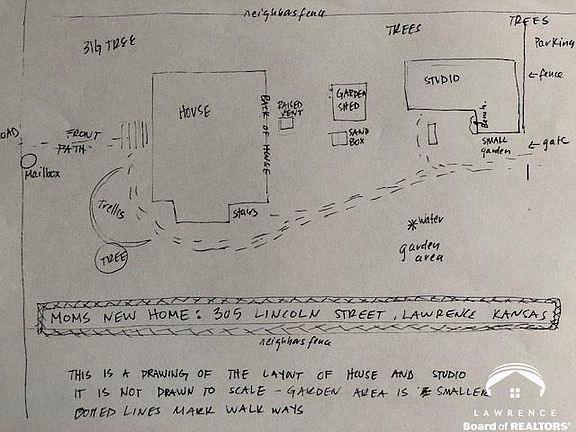 neighbors fence
TREES
TREES
BIG TREE
Parking
HOUSE
BACK OF HOUSE
RAISED
VENT
GARDEN
SHED
STUDIO
fence
Bench
SAND
BOX
SMALL
garden
gate
ROAD
FRONT
PATH
Mailbox
Trellis
stairs
TREE
water
garden
area
MOMS NEW HOME: 305 LINCOLN STREET, LAWRENCE KANSAS
neighbors fence
THIS IS A DRAWING OF THE LAYOUT OF HOUSE AND STUDIO
IT IS NOT DRAWN TO SCALE - GARDEN AREA IS SMALLER
DOTTED LINES MARK WALK WAYS
LAWRENCE
Board of REALTORS®